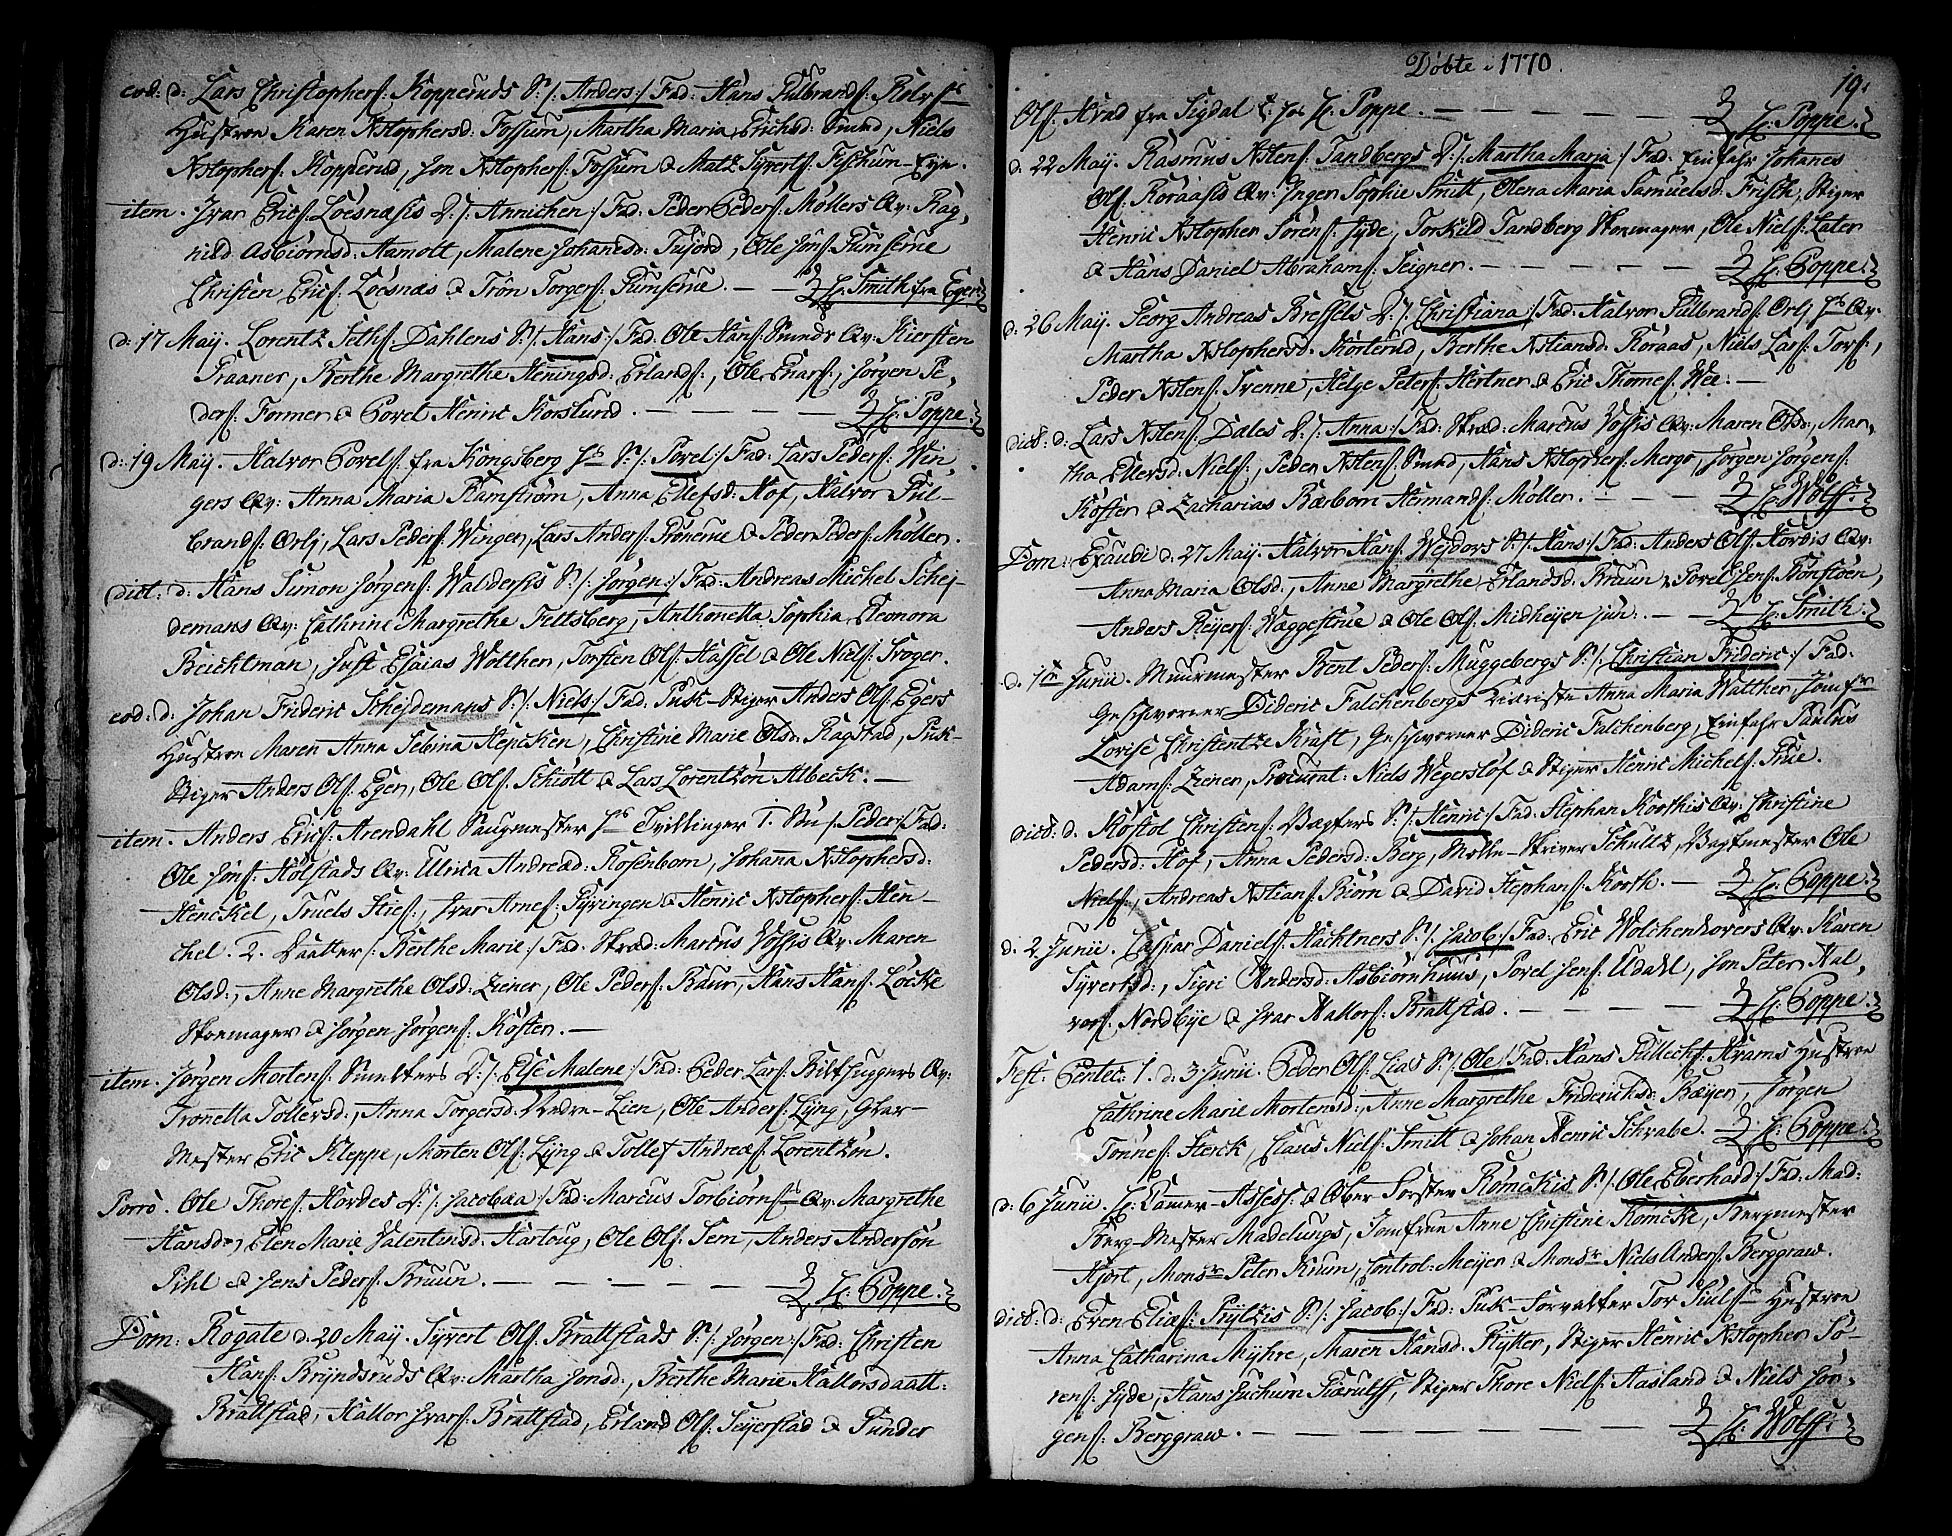 eod: d: Lars Christophers: Kopperuds S:/: Anders:/ Fad: Hans Gulbrands:
Hustroe Karen Xstophersd: Fossum, Martha Maria Erichsd: Smed, Niels
Xstophers: Kopperud, Jon Xstophers: Fossum & Matz Syverts: Fischum-Eye.
item. Ivar Erics: Loesnæsis D:/: Annichen:/ Fad: Peder Peders: Møllers Qv: Rag,
nild Asbiørnsd: Aamott, Malene Johansd: Ole Jons:
Christen Erics: Loesnæs & Trön Torgers: — — H: Smith fra Eger
d: 17 Maij. Lorentz Seths: Dahlens S:/: Hans:/ Fad: Ole Hans: Smeds Qv: Kiersten
Praaner, Berthe Margrethe Heningsd: Erlands:, Ole Enars:, Jørgen Pe,
ders: Former & Povel Henric Korslund. — — — — H: Poppe.
d: 19 Maij. Halvor Povels: fra Kongsberg S:/: Povel:/ Fad: Lars Peders: Win,
gers Qv: Anna Maria Ramstrøm, Anna Ellefsd: Hof, Halvor Gul-
brands: Orlj, Lars Peders: Winger, Lars Anders: & Peder Peders: Møller.
dict: d: Hans Simon Jørgens: Waldersis S:/: Jørgen:/ Fad: Andreas Michel Schej-
demans Qv: Cathrine Margrethe Feltsberg, Anthonetta Sophia Eleonora
Beichtman, Just Esaias Wolther, Torsten Ols: Hassel & Ole Niels: Troger.
eod: d: Johan Frideric Schejdemans S:/: Niels:/ Fad: Puk-Stiger Anders Ols: Egers
Hustroe Maren Anna Sebina Hencken, Christine Marie Olsd: Ragstad, Puk-
Stiger Anders Ols: Eger, Ole Ols: Schiøtt & Lars Lorentzøn Albeck. —
item. Anders Erics: Arendahl Saugmester Tvillinger 1. Søn /: Peder:/ Fad:
Ole Jøns: Holstads Qv: Ulrica Andread: Rosenborn, Johana Xstophersd:
Henckel, Truels Ivar Arnes: Tyvingen & Henric Xstophers: Hen-
chel. 2. Daatter /: Berthe Marie:/ Fad: Skræd: Marcus Vossis Qv: Maren
Olsd:, Anne Margrethe Olsd: Ziener, Ole Peders: Baur, Hans Hans: Løcke
Skoemager & Jørgen Jørgens: Köster. —
item. Jørgen Mortens: Smelters D:/: Else Malene:/ Fad: Peder Lars: Bilthuggers Qv:
Tronella Tollersd:, Anna Torgersd: Nedre-Lien, Ole Anders: Lÿng, Glar-
Mester Eric Kleppe, Morten Ols: Lÿng & Tollef Andreæs: Lorentzön.
Porro. Ole Thores: Hordes D:/: Jacobaa:/ Fad: Marcus Torbiørns: Qv: Margrethe
Hansd:, Elen Marie Valentinsd: Hartoug, Ole Ols: Sem, Anders Anderson
Pihl & Jens Peders: Bruun. — — — — H: Poppe.
Dom: Rogate d: 20 Maij. Syvert Ols: Brattstads S:/: Jørgen:/ Fad: Christen
Hans: Bryndsruds Qv: Martha Jonsd:, Berthe Marie Hallorsdaatt:
Brattstad, Hallor Ivars: Brattstad, Erland Ols: Seijerstad & Gunder
Døbte 1770. 19.
Ols: Krad fra Sigdal — — — H: Poppe.
d: 22 Maij. Rasmus Xstens: Tandbergs D:/: Martha Maria:/ Fad: Einfahr Johanes
Ols: Roraasis Qv: Inger Sophie Smitt, Olena Maria Samuelsd: Frisch, Stiger
Henric Xstopher Sørens: Syde, Torkild Tandberg Skoemager, Ole Niels: Later
& Hans Daniel Abrahams: Seigner. — — — — H: Poppe.
d: 26 Maij. Georg Andreas Bressels D:/: Christiana:/ Fad: Halvor Gulbrands: Orlj Qv:
Martha Xstophersd: Korterud, Berthe Xstiansd: Roraas, Niels Lars: Tors:,
Peder Xstens: Svenne, Helge Peters: Hertner & Eric Thomes: Wee. —
dict: d: Lars Xstens: Dales D:/: Anna:/ Fad: Skræd: Marcus Vossis Qv: Maren Olsd:, Mar,
tha Ellersd: Niels:, Peder Xstens: Smed, Hans Xstophers: Mergo, Jørgen Jørgens:
Köster & Zacharias Bærbom Hermands: Møller. — — — H: Wolff.
Dom: Exaudi d: 27 Maij. Halvor Hans: Wejdors S:/: Hans:/ Fad: Anders Ols: Kordis Qv:
Anna Maria Olsd:, Anne Margrethe Erlandsd: Bruun, Povel Jens: Bonstöen,
Anders Reijers: Waggestrue & Ole Ols: Midheijen jun: — H: Smith.
d: 1ste Junii. Muurmester Bent Peders: Muggebergs S:/: Christian Frideric:/ Fad:
Geschworner Dideric Falchenbergs Kiæriste Anna Maria Walther, Jomfr:
Lovise Christentze Kraft, Geschworner Dideric Falchenberg, Einfahr Paulus
Adams: Ziener, Procurat: Niels Wegersløf & Stiger Henric Michels: Frue.
dict: d: Köstol Christens: Vagters S:/: Henric:/ Fad: Stephan Korthis Qv: Christine
Pedersd: Hof, Anna Pedersd: Berg, Mølle-Skriver Schultz, Vagtmester Ole
Niels:, Andreas Xstians: Biørn & David Stephans: Korth. — H: Poppe.
d: 2 Junii. Caspar Daniels: Nachtners S:/: Jacob:/ Fad: Eric Wolchenhovers Qv: Karen
Syvertsd:, Sigri Andersd: Asbiørnhuus, Povel Jens: Udahl, Jon Peter Hal,
vors: Nordbÿe & Ivar Hallors: Brattstad. — — — H: Poppe.
Fest: Pentec: 1. d: 3 Junii. Peder Ols: Lias S:/: Ole:/ Fad: Hans Gullechs: Krams Hustroe
Cathrine Marie Mortensd:, Anne Margrethe Fridericksd: Bæijer, Jørgen
Tönnes: Sterck, Claus Niels: Smitt & Johan Henric Schwabe. — H: Poppe.
d: 6 Junii. H: Camer-Assess: & Ober-Forster Römckis S:/: Ole Eberhard:/ Fad: Mad:
Berg-Mester Madelungs, Jomfrue Anne Christine Romcke, Bergmester
Hjort, Monsr: Peter Krum, Control: Meijer & Monsr: Niels Anders: Berggraw.
dict: d: Even Elies: Prÿtzis S:/: Jacob:/ Fad: Puk-Forvalter Tor Juls: Hustroe
Anna Catharina Mÿhre, Maren Hansd: Rÿtter, Stiger Henric Xstopher Sø-
rens: Syde, Hans Juchum Kiærulff, Stiger Thore Niels: Aasland & Niels Jør,
gens: Berggraw. — — — — — — H: Wolff.